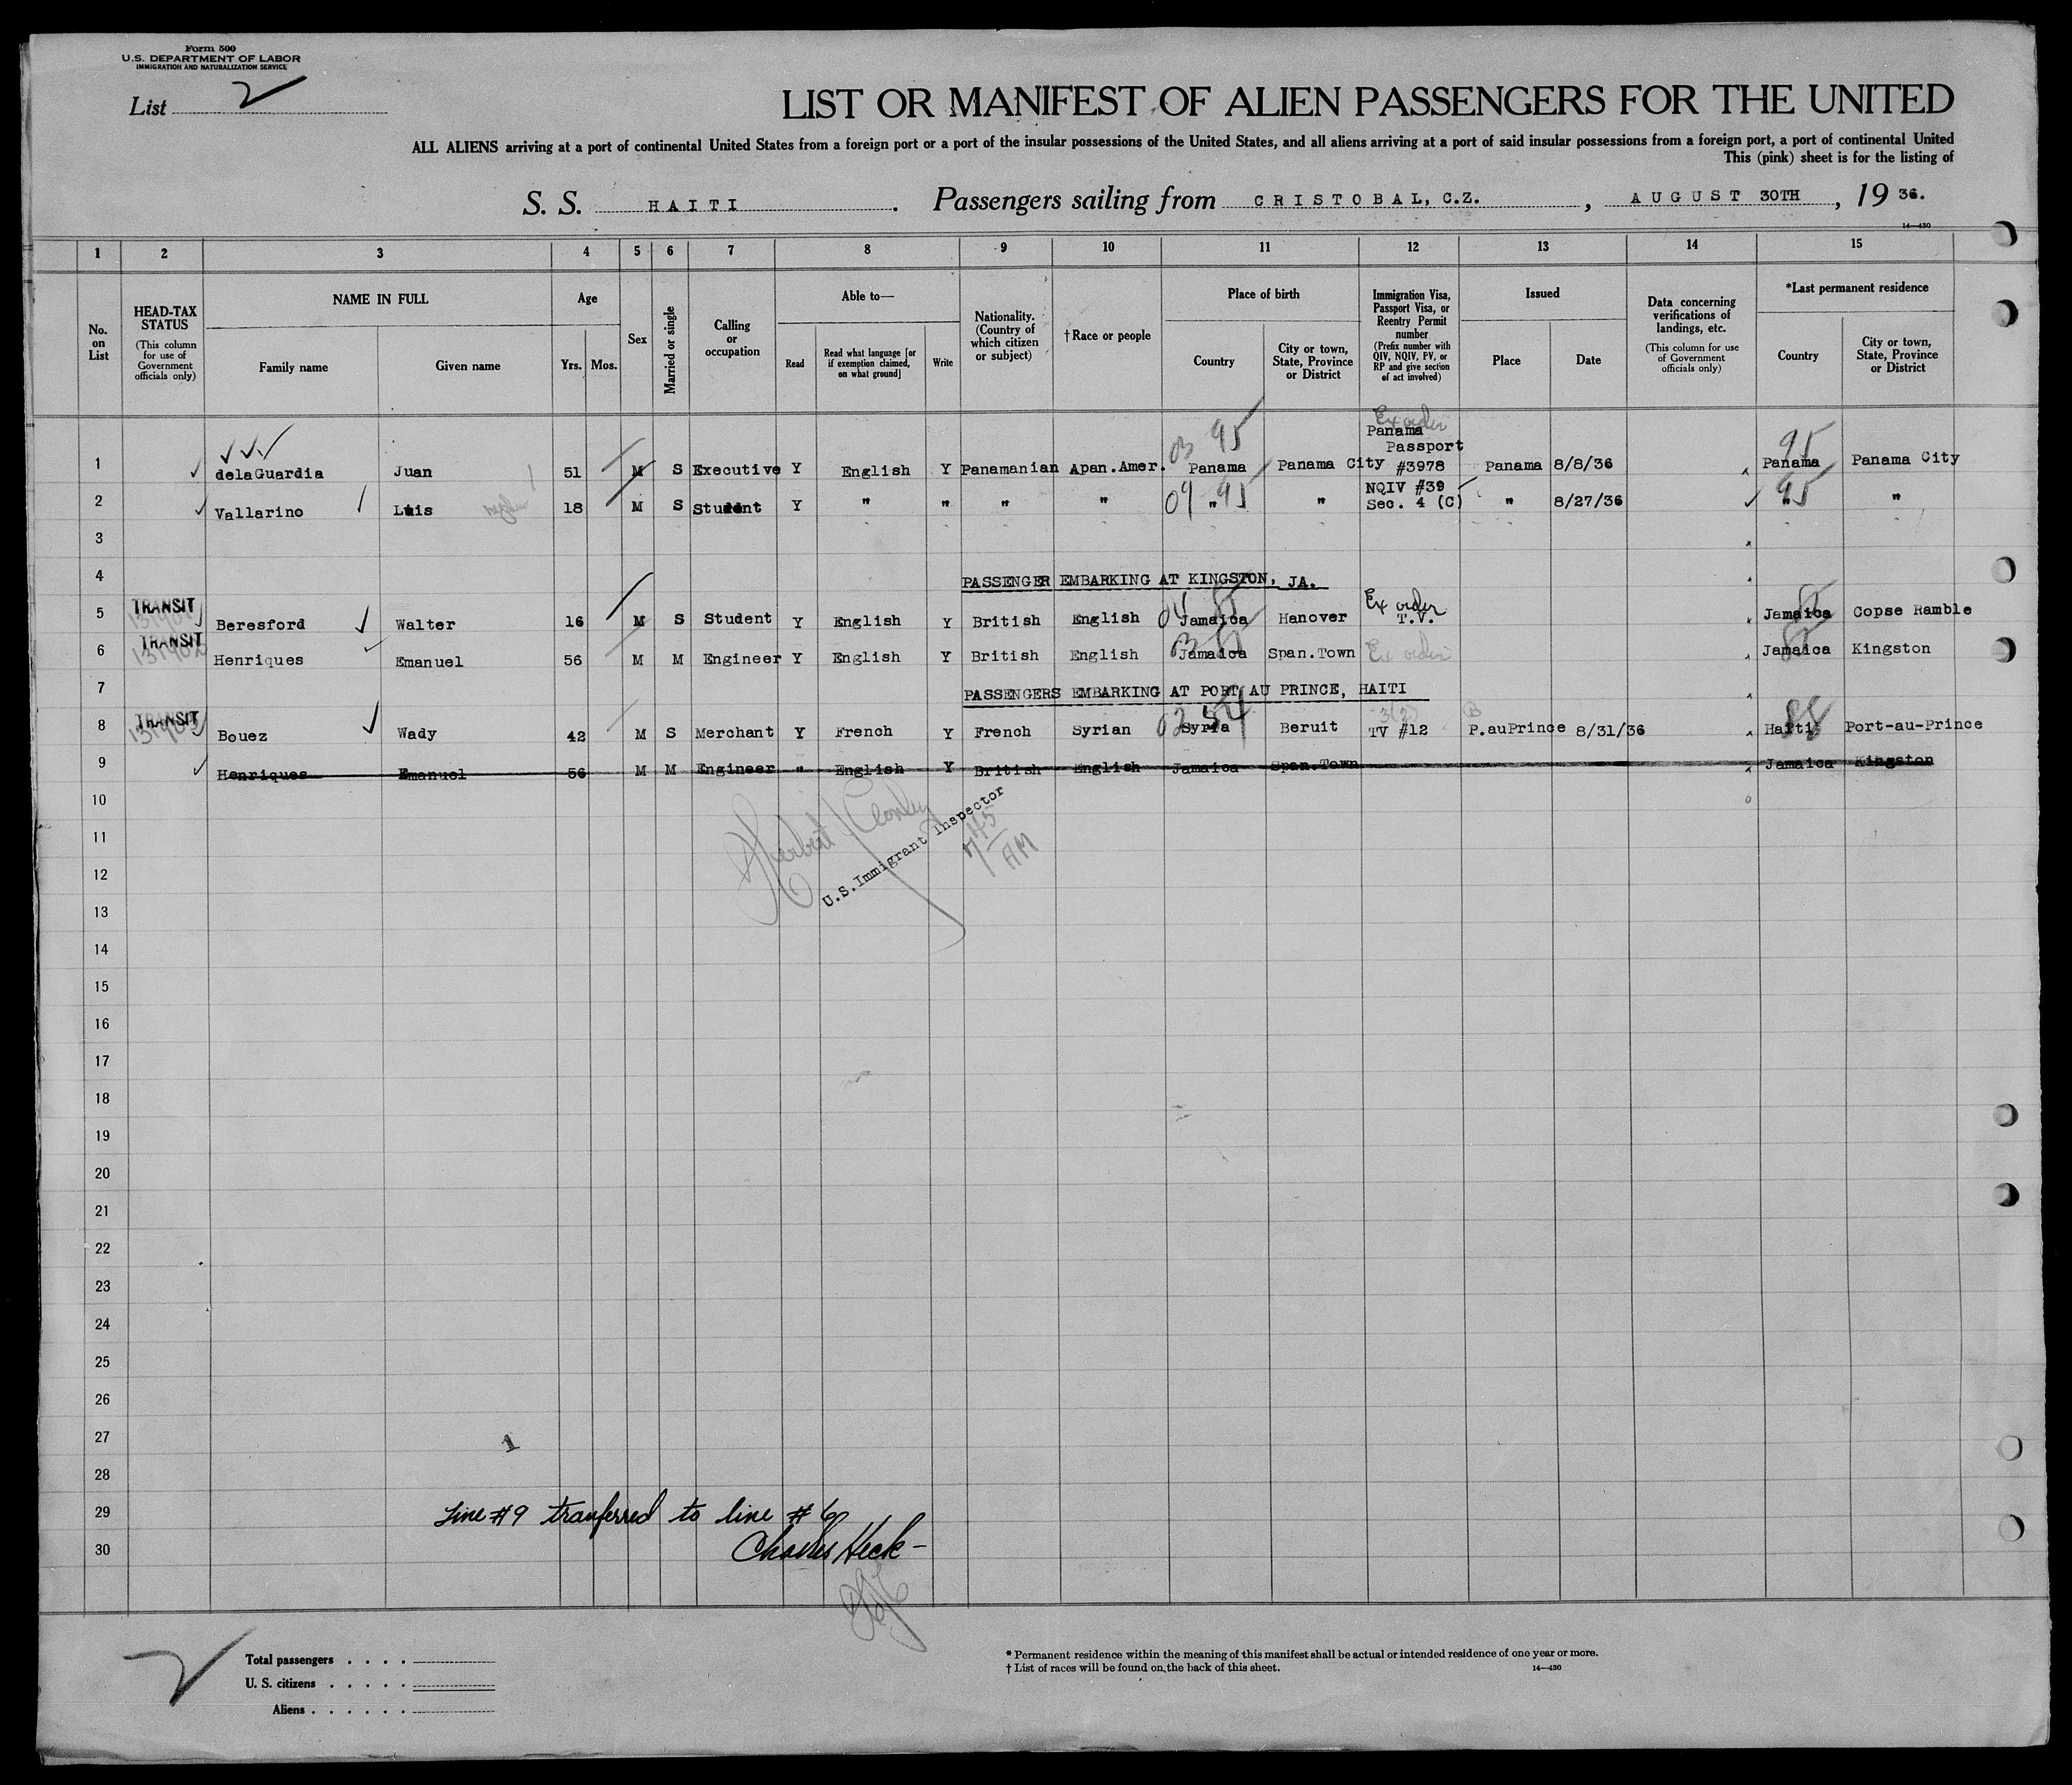 Form 500
U.S. DEPARTMENT OF LABOR
IMMIGRATION AND NATURALIZATION SERVICE
List 2
LIST OR MANIFEST OF ALIEN PASSENGERS FOR THE UNITED
ALL ALIENS arriving at a port of continental United States from a foreign port or a port of the insular possessions of the United States, and all aliens arriving at a port of said insular possessions from a foreign port, a port of continental United
This (pink) sheet is for the listing of
S. S. HAITI. Passengers sailing from CRISTOBAL, C.Z., AUGUST 30TH, 19 36.
14—430
1 2 3 4 5 6 7 8 9 10 11 12 13 14 15
No. on List
HEAD-TAX STATUS
(This column for use of Government officials only)
NAME IN FULL
Family name Given name
Age
Yrs. Mos.
Sex
Married or single
Calling or occupation
Able to—
Read
Read what language [or if exemption claimed, on what ground]
Write
Nationality. (Country of which citizen or subject)
†Race or people
Place of birth
Country
City or town, State, Province or District
Immigration Visa, Passport Visa, or Reentry Permit number
(Prefix number with QIV, NQIV, PV, or RP and give section of act involved)
Issued
Place Date
Data concerning verifications of landings, etc.
(This column for use of Government officials only)
*Last permanent residence
Country
City or town, State, Province or District
Ex order
03 95 95
1 delaGuardia Juan 51 M S Executive Y English Y Panamanian Apan.Amer. Panama Panama City Panama Passport #3978 Panama 8/8/36 Panama Panama City
2 Vallarino Luis nephew 18 M S Student Y " " " " 09 " 95 " NQIV #39 Sec. 4 (C) " 8/27/36 95 " "
3
4 PASSENGER EMBARKING AT KINGSTON, JA.
5 TRANSIT Beresford Walter 16 M S Student Y English Y British English 04 Jamaica Hanover Ex order T.V. Jamaica Copse Ramble
6 TRANSIT Henriques Emanuel 56 M M Engineer Y English Y British English 03 Jamaica Span.Town Ex order Jamaica Kingston
7 PASSENGERS EMBARKING AT PORT AU PRINCE, HAITI
8 TRANSIT Bouez Wady 42 M S Merchant Y French Y French Syrian 02 54 Syria Beruit 3(2) TV #12 P.auPrince 8/31/36 88 Haiti Port-au-Prince
9 Henriques Emanuel 56 M M Engineer " English Y British English Jamaica Span.Town Jamaica Kingston
10
U.S.Immigrant Inspector
7 45 AM
11
12
13
14
15
16
17
18
19
20
21
22
23
24
25
26
27
1
28
29
Line #9 tranferred to line #6
30
Charles Heck
2
Total passengers . . . .
U. S. citizens . . . . .
Aliens . . . . . .
* Permanent residence within the meaning of this manifest shall be actual or intended residence of one year or more.
† List of races will be found on the back of this sheet.
14—430